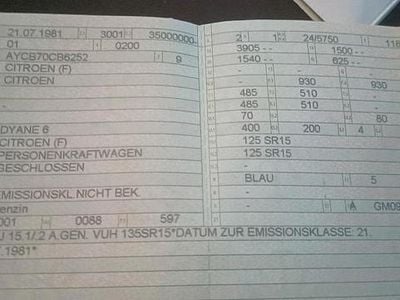 21.07.1981 3001 35000000
01 0200
AYCB70CB6252 9
CITROEN (F)
CITROEN
DYANE 6
CITROEN (F)
PERSONENKRAFTWAGEN
GESCHLOSSEN
EMISSIONSKL.NICHT BEK.
enzin
001 0088 597
2 1 24/5750 118
3905 -- 1500 --
1540 -- 625 --
- 930 930
485 510
485 510
70 - 80
400 200 4
125 SR15
125 SR15
BLAU 5
- A GM09
U 15.1/.2 A.GEN. VUH 135SR15*DATUM ZUR EMISSIONSKLASSE: 21.
.1981*